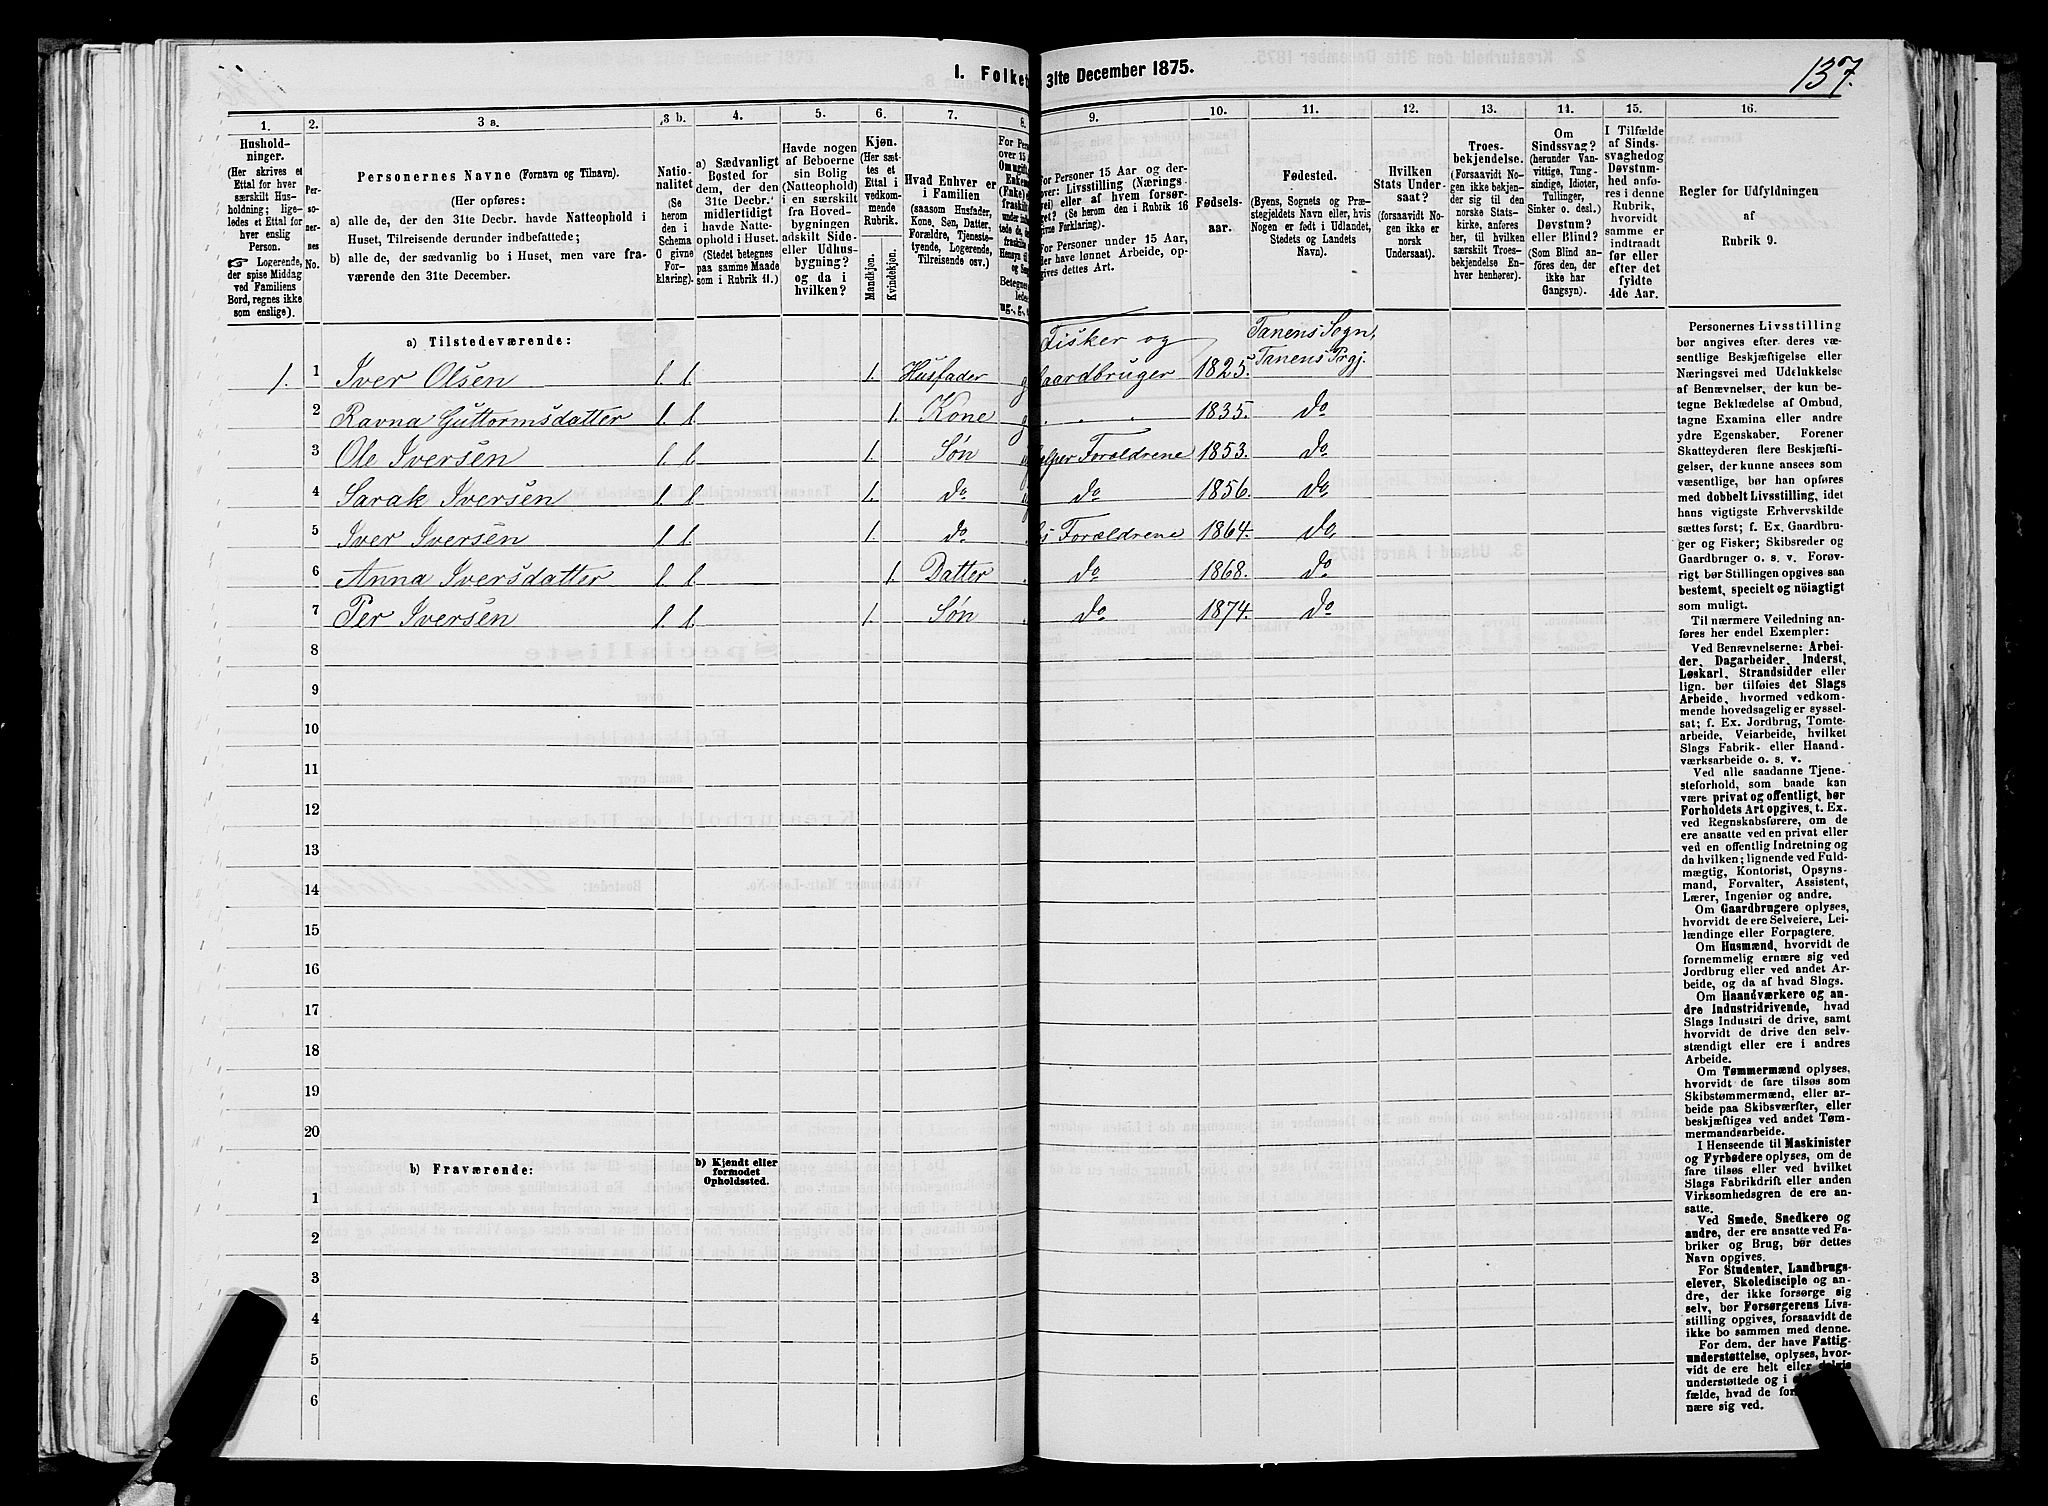 137.
1. Folket 31te December 1875.
1. 2. 3 a. 3 b. 4. 5. 6. 7. 8. 9. 10. 11. 12. 13. 14. 15. 16.
Hushold-
ninger.
(Her skrives et
Ettal for hver
særskilt Hus-
holdning; lige-
ledes et Ettal for
hver enslig
Person.
☞ Logerende,
der spise Middag
ved Familiens
Bord, regnes ikke
som enslige).
Per-
so-
ner-
nes
No.
Personernes Navne (Fornavn og Tilnavn).
(Her opføres:
a) alle de, der den 31te Decbr. havde Natteophold i
Huset, Tilreisende derunder indbefattede;
b) alle de, der sædvanlig bo i Huset, men vare fra-
værende den 31te December.
Natio-
nalitet
(Se
herom
den i
Schema
C givne
For-
klaring).
a) Sædvanligt
Bosted for
dem, der den
31te Decbr.
midlertidigt
havde Natte-
ophold i Huset.
(Stedet betegnes
paa samme Maade
som i Rubrik 11.)
Havde nogen
af Beboerne
sin Bolig
(Natteophold)
i en særskilt
fra Hoved-
bygningen
adskilt Side-
eller Udhus-
bygning?
og da i
hvilken?
Kjøn.
(Her sæt-
tes et
Ettal i
vedkom-
mende
Rubrik.
Mandkjøn.
Kvindekjøn.
Hvad Enhver er
i Familien
(saasom Husfader,
Kone, Søn, Datter,
Forældre, Tjeneste-
tyende, Logerende,
Tilreisende osv.)
For Personer 15 Aar og der-
over: Livsstilling (Nærings-
vei) eller af hvem forsør-
get? (Se herom den i Rubrik 16
givne Forklaring).
For Personer under 15 Aar,
der have lønnet Arbeide, op-
gives dettes Art.
Fødsels-
aar.
Fødested.
(Byens, Sognets og Præ-
stegjeldets Navn eller, hvis
Nogen er født i Udlandet,
Stedets og Landets
Navn).
Hvilken
Stats Under-
saat?
(forsaavidt No-
gen ikke er
norsk
Undersaat).
Troes-
bekjendelse.
(Forsaavidt No-
gen ikke bekjen-
der sig til den
norske Stats-
kirke, anføres
her, til hvilken
særskilt Troes-
bekjendelse En-
hver henhører).
Om
Sindssvag?
(herunder Van-
vittige, Tung-
sindige, Idioter,
Tullinger,
Sinker o. desl.)
Døvstum?
eller Blind?
(Som Blind an-
føres den, der
ikke har
Gangsyn).
I Tilfælde
af Sinds-
svaghed og
Døvstum-
hed anfø-
res i denne
Rubrik,
hvorvidt
samme er
indtraadt
før eller
efter det
fyldte
4de Aar.
Regler for Udfyldningen
af
Rubrik 9.
a) Tilstedeværende:
1. 1 Iver Olsen 1. 1. 1. Husfader g Fisker og Gaardbruger 1825. Tanens Sogn, Tanens Prgj.
2 Ravna Guttormsdatter 1. 1. 1. Kone g 1835. do
3 Ole Iversen 1. 1. 1. Søn Forældrene 1853. do
4 Sarak Iversen 1. 1. 1. do do 1856. do
5 Iver Iversen 1. 1. 1. do Forældrene 1864. do
6 Anna Iversdatter 1. 1. 1. Datter do 1868. do
7 Per Iversen 1. 1. 1. Søn do 1874. do
8
9
10
11
12
13
14
15
16
17
18
19
20
b) Fraværende:
b) Kjendt eller
formodet
Opholdssted.
1
2
3
4
5
6
Personernes Livsstilling
bør angives efter deres væ-
sentlige Beskjæftigelse eller
Næringsvei med Udelukkelse
af Benævnelser, der kun be-
tegne Beklædelse af Ombud,
tagne Examina eller andre
ydre Egenskaber. Forener
Skatteyderen flere Beskjæfti-
gelser, der kunne ansees som
væsentlige, bør han opføres
med dobbelt Livsstilling, idet
hans vigtigste Erhvervskilde
sættes først; f. Ex. Gaardbru-
ger og Fisker; Skibsreder og
Gaardbruger o. s. v. Forøv-
rigt bør Stillingen opgives saa
bestemt, specielt og nöiagtigt
som muligt.
Til nærmere Veiledning an-
føres her endel Exempler:
Ved Benævnelserne: Arbei-
der, Dagarbeider, Inderst,
Løskarl, Strandsidder eller
lign. bør tilføies det Slags
Arbeide, hvormed vedkom-
mende hovedsagelig er syssel-
sat; f. Ex. Jordbrug, Tomte-
arbeide, Veiarbeide, hvilket
Slags Fabrik- eller Haand-
værksarbeide o. s. v.
Ved alle saadanne Tjene-
steforhold, som baade kan
være privat og offentligt, bør
Forholdets Art opgives, t. Ex.
ved Regnskabsførere, om de
ere ansatte ved en privat eller
ved en offentlig Indretning og
da hvilken; lignende ved Fuld-
mægtig, Kontorist, Opsyns-
mand, Forvalter, Assistent,
Lærer, Ingeniør og andre.
Om Gaardbrugere oplyses,
hvorvidt de ere Selveiere, Lei-
lændinge eller Forpagtere.
Om Husmænd, hvorvidt de
fornemmelig ernære sig ved
Jordbrug eller ved andet Ar-
beide, og da af hvad Slags.
Om Haandværkere og an-
dre Industridrivende, hvad
Slags Industri de drive, samt
hvorvidt de drive den selv-
stændigt eller ere i andres
Arbeide.
Om Tømmermænd oplyses,
hvorvidt de fare tilsøs som
Skibstømmermænd, eller ar-
beide paa Skibsværfter, eller
beskjæftiges ved andet Tøm-
mermandsarbeide.
I Henseende til Maskinister
og Fyrbødere oplyses, om de
fare tilsøs eller ved hvilket
Slags Fabrikdrift eller anden
Virksomhedsgren de ere an-
satte.
Ved Smede, Snedkere og
andre, der ere ansatte ved Fa-
briker og Brug, bør dettes
Navn opgives.
For Studenter, Landbrugs-
elever, Skoledisciple og an-
dre, der ikke forsørge sig
selv, bør Forsørgerens Livs-
stilling opgives, forsaavidt de
ikke bo sammen med denne.
For dem, der have Fattig-
understøttelse, oplyses, hvor-
vidt de ere helt eller delvis
understøttede og i
fælde, hvad de
nære sig ved.